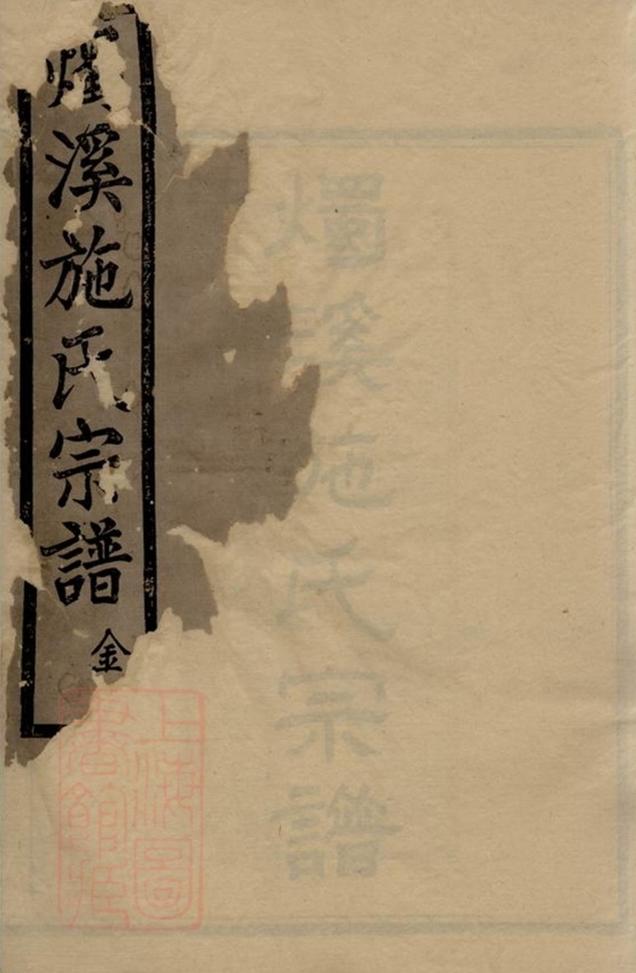 燭溪施氏宗譜
金
燭溪施氏宗譜
上海圖書館藏